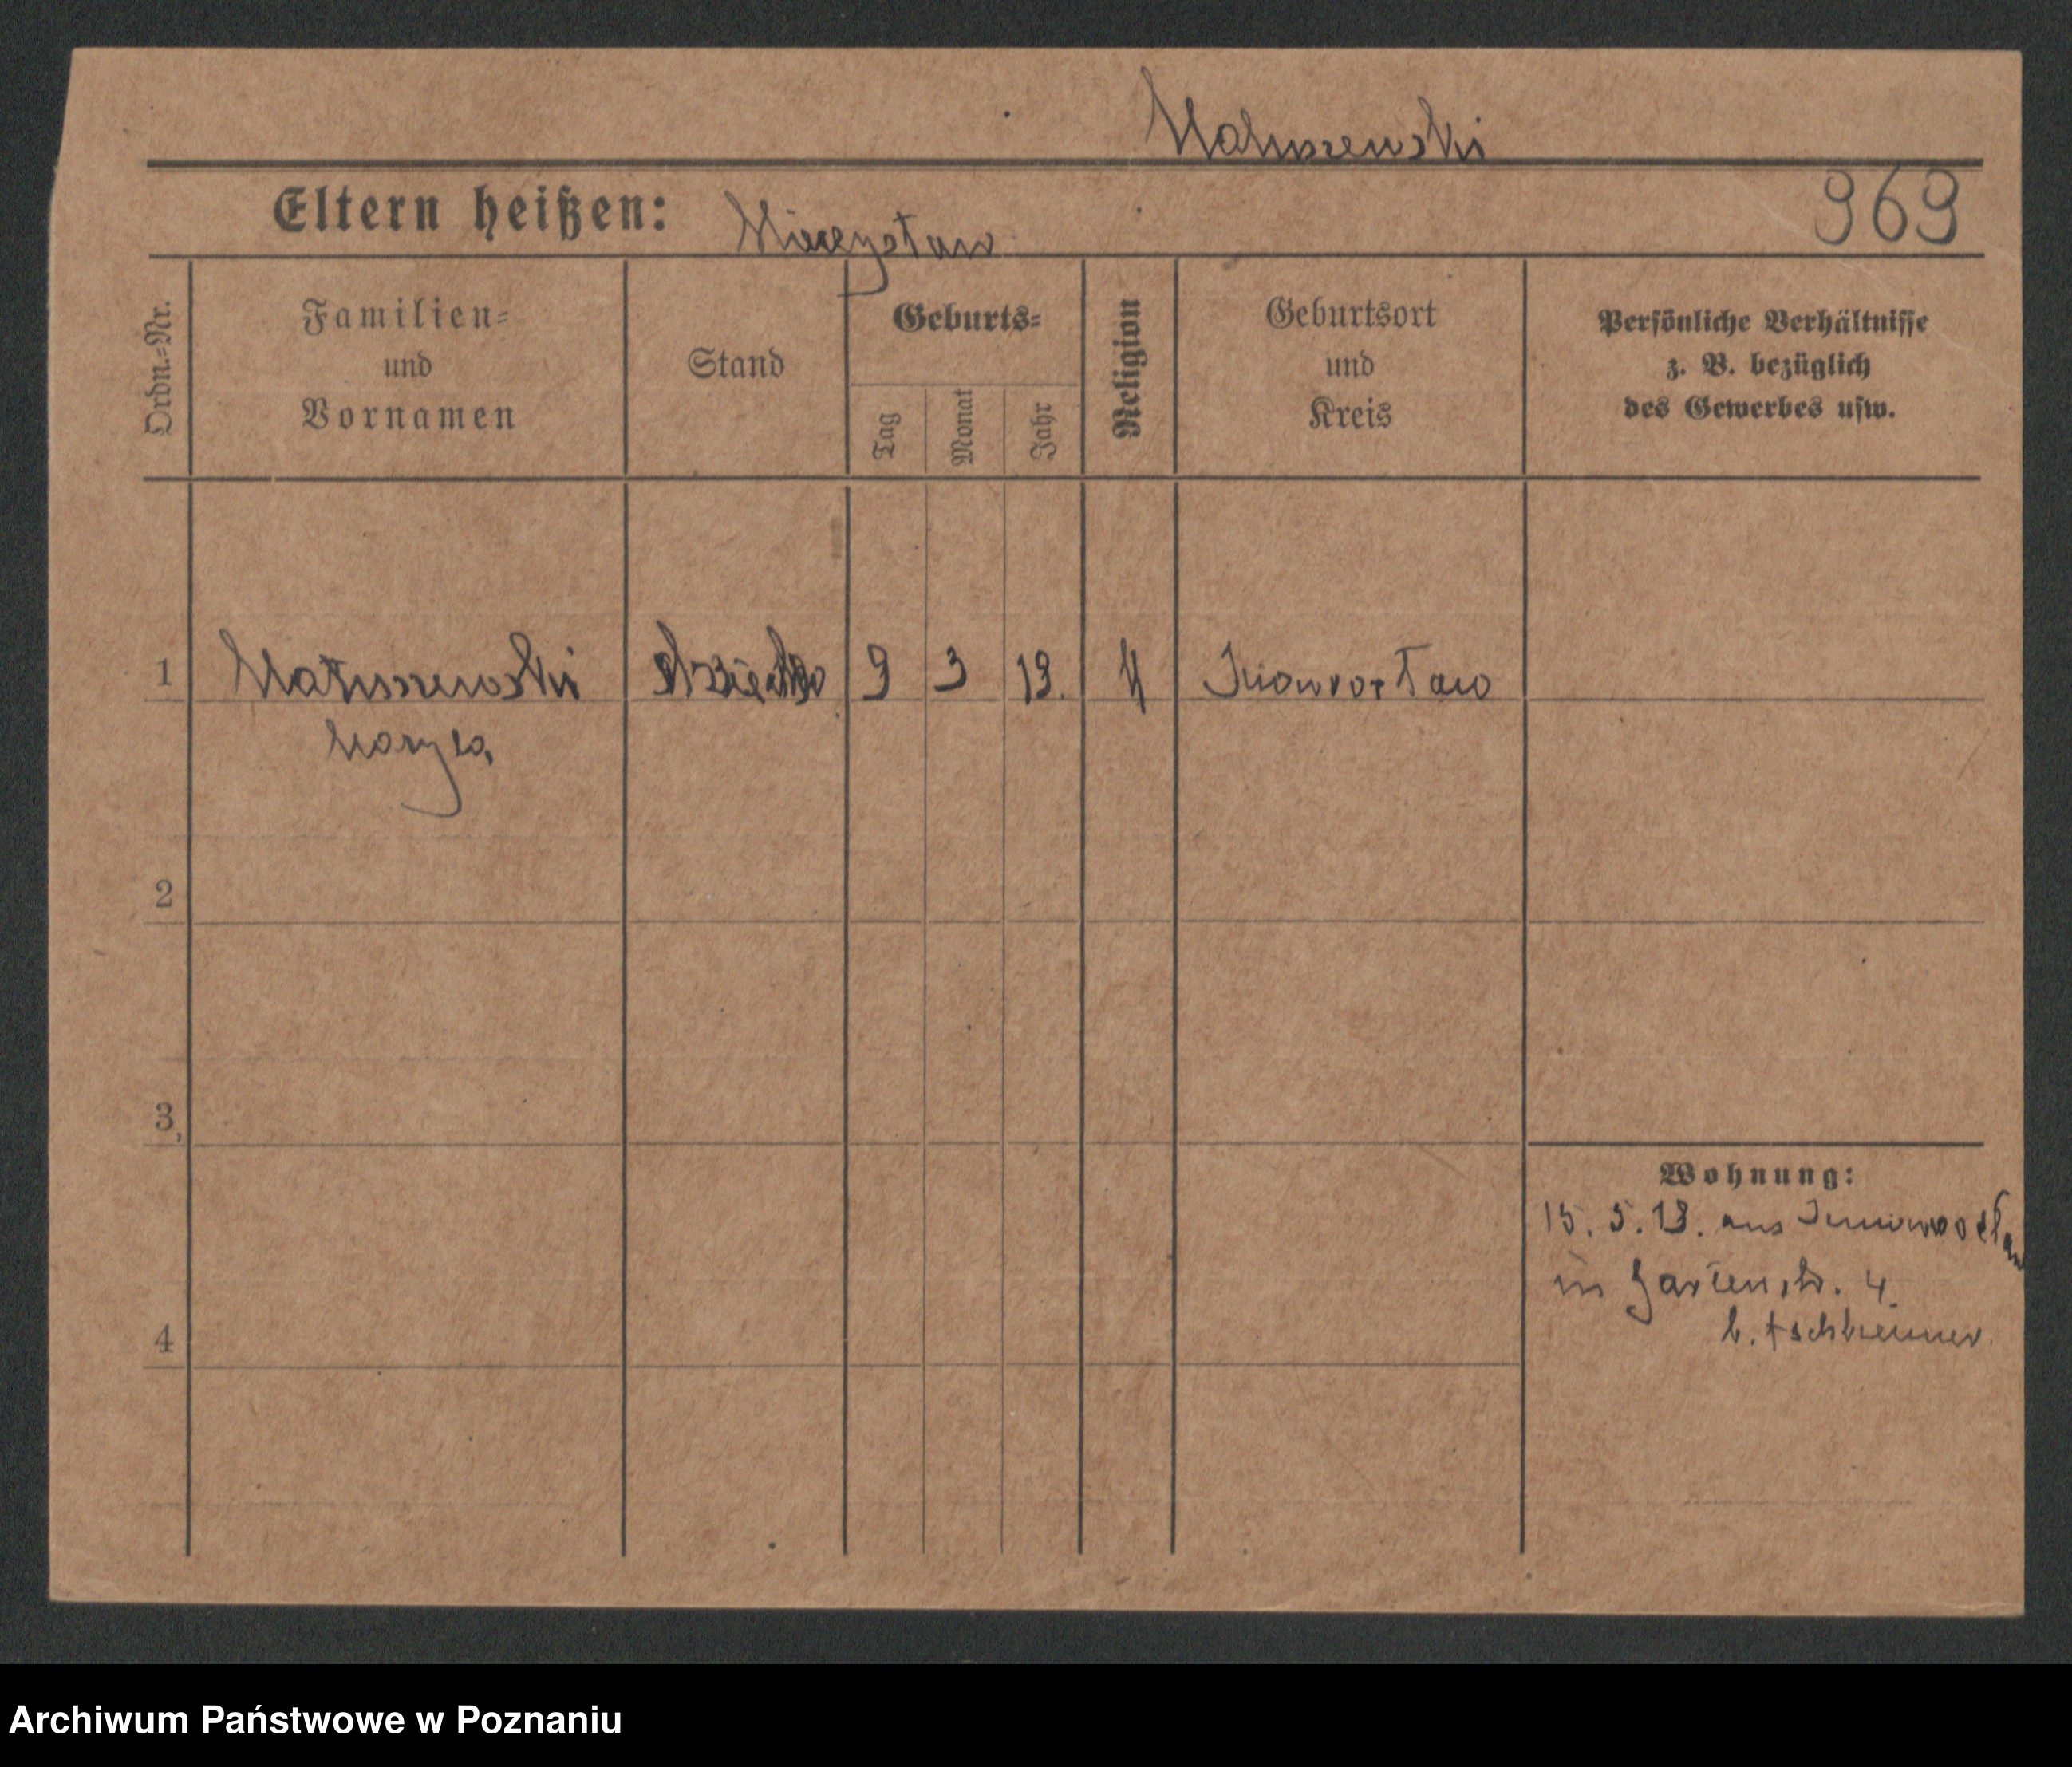 Matuszewski
Eltern heißen: Mieczysław
969
Ordn.=Nr.
Familien=
und
Vornamen
Stand
Geburts=
Tag
Monat
Jahr
Religion
Geburtsort
und
Kreis
Persönliche Verhältnisse
z. B. bezüglich
des Gewerbes usw.
1
Matuszewski
dziecko
9
3
19.
Inowrocław
Maryla
2
3
4
Wohnung:
15. 5. 19. aus Inowrocław
in Gartenstr. 4.
b.
Archiwum Państwowe w Poznaniu